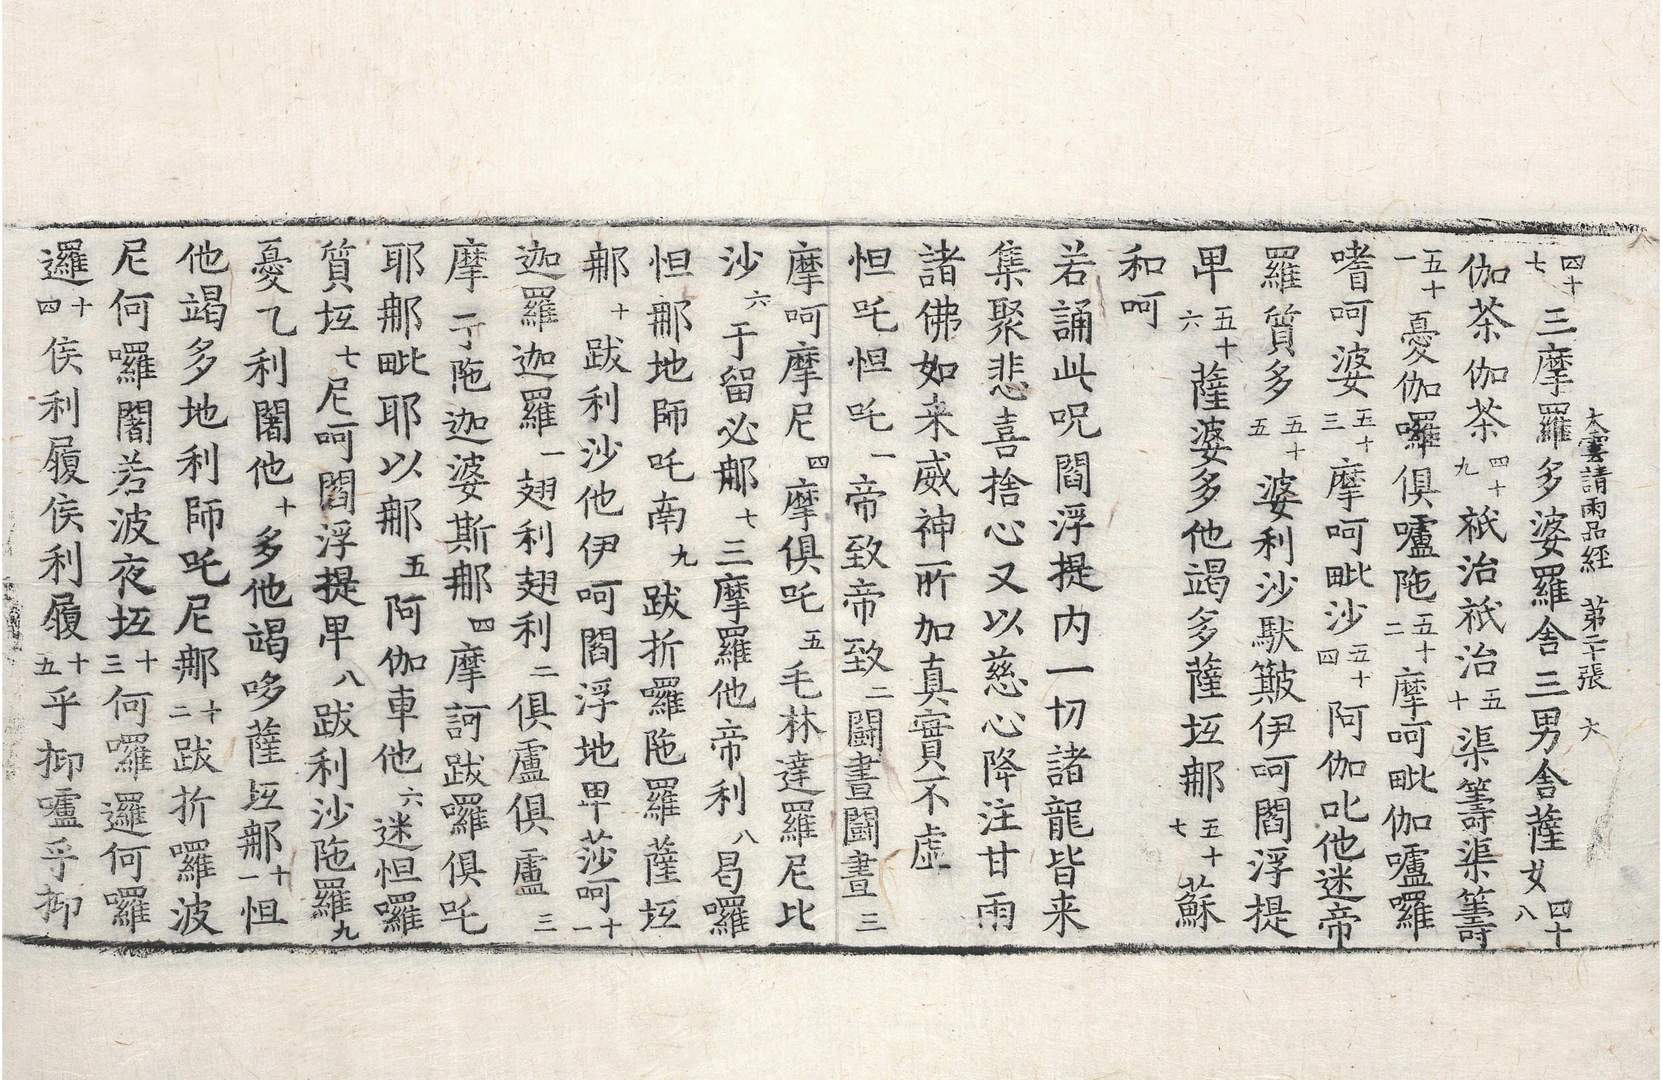 大雲請雨品經 第二十張 六
四十七三摩羅多婆羅舍三男舍薩女四十八
伽茶伽茶四十九祇治祇治五十渠籌渠籌
五十一憂伽囉俱嚧陁五十二摩呵毗伽嚧囉
嗜呵婆五十三摩呵毗沙五十四阿伽叱他迷帝
羅質多五十五婆利沙馱簸伊呵閻浮提
卑五十六薩婆多他竭多薩坘那五十七蘇
和呵
若誦此呪閻浮提内一切諸龍皆来
集聚悲喜捨心又以慈心降注甘雨
諸佛如来威神所加真實不虛
怛吒怛吒一帝致帝致二闘晝闘晝三
摩呵摩尼四摩俱吒五毛林達羅尼比
沙六于留必那七三摩羅他帝利八曷囉
怛那地師吒南九跋折囉陁羅薩坘
那十跋利沙他伊呵閻浮地卑莎呵十一
迦羅迦羅一翅利翅利二俱盧俱盧三
摩訶陁迦婆斯那四摩訶跋囉俱吒
耶那毗耶以那五阿伽車他六迷怛囉
質坘七尼呵閻浮提卑八跋利沙陁羅九
憂乁利闍他十多他竭哆薩坘那十一怛
他竭多地利師吒尼那十二跋折囉波
尼何囉闍若波夜坘十三何囉邏何囉
邏十四侯利履侯利履十五乎抑嚧乎抑